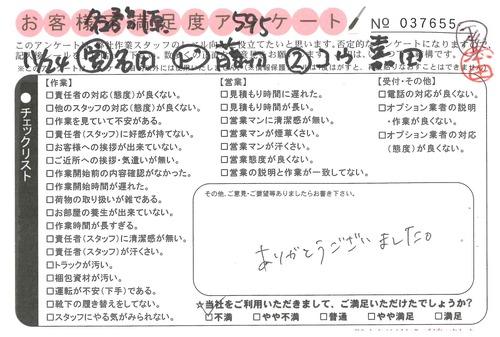 お客様満足度アンケート
No 037655
595
このアンケートは
【作業】
□責任者の対応(態度)が良くない。
□他のスタッフの対応(態度)が良くない。
□作業を見ていて不安がある。
□責任者(スタッフ)に好感が持てない。
□お客様への挨拶が出来ていない。
□ご近所への挨拶・気遣いが無い。
□作業開始前の内容確認がなかった。
□作業開始時間が遅れた。
□荷物の取り扱いが雑である。
□お部屋の養生が出来ていない。
□作業時間が長すぎる。
□責任者(スタッフ)に清潔感が無い。
□責任者(スタッフ)が汗くさい。
□トラックが汚い。
□梱包資材が汚い。
□運転が不安(下手)である。
□靴下の履き替えをしてない。
□スタッフにやる気がみられない。
【営業】
□見積もり時間に遅れた。
□見積もり時間が長い。
□営業マンに清潔感が無い。
□営業マンが煙草くさい。
□営業マンが汗くさい。
□営業態度が良くない。
□営業の説明と作業が一致してない。
【受付・その他】
□電話の対応が良くない。
□オプション業者の説明
・作業が良くない。
□オプション業者の対応
(態度)が良くない。
チェックリスト
その他、ご意見・ご要望等ありましたらお書き下さい。
ありがとうございました。
☆当社をご利用いただきまして、ご満足いただけたでしょうか?
□不満 □やや不満 □普通 □やや満足 □満足